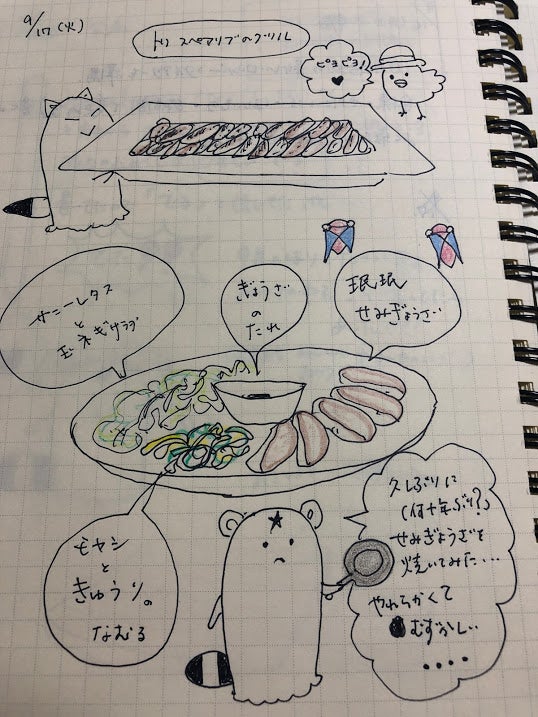 9/17(火)
トリスペアリブのグリル
ピヨピヨ!
サニーレタス
と
玉ネギサラダ
ぎょうざ
の
たれ
珉珉
せみぎょうざ
モヤシ
と
きゅうりの
なむる
久しぶりに
(何十年ぶり?)
せみぎょうざを
焼いてみた...
やわらかくて
むずかしい
....